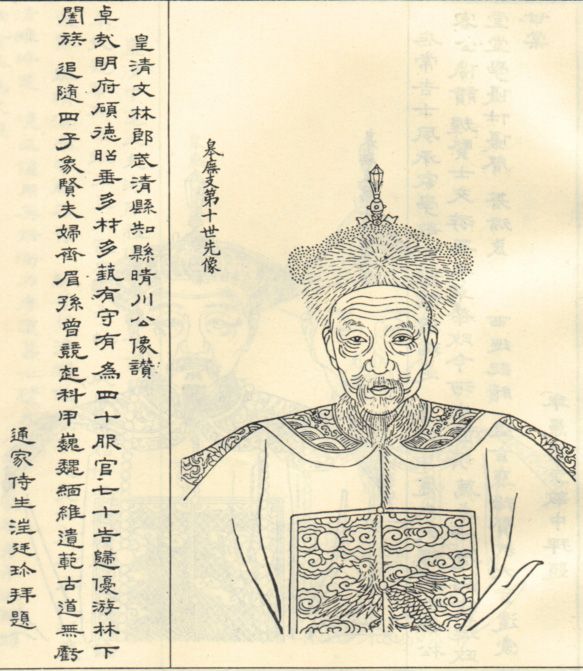 皋廡支第十世先像
皇清文林郎武清縣知縣晴川公像讚
卓哉明府碩德昭垂多材多蓺有守有為四十服官七十告歸優游林下
闔族追隨四子象賢夫婦齊眉孫曾競起科甲巍巍緬維遺範古道無虧
通家侍生汪廷珍拜題